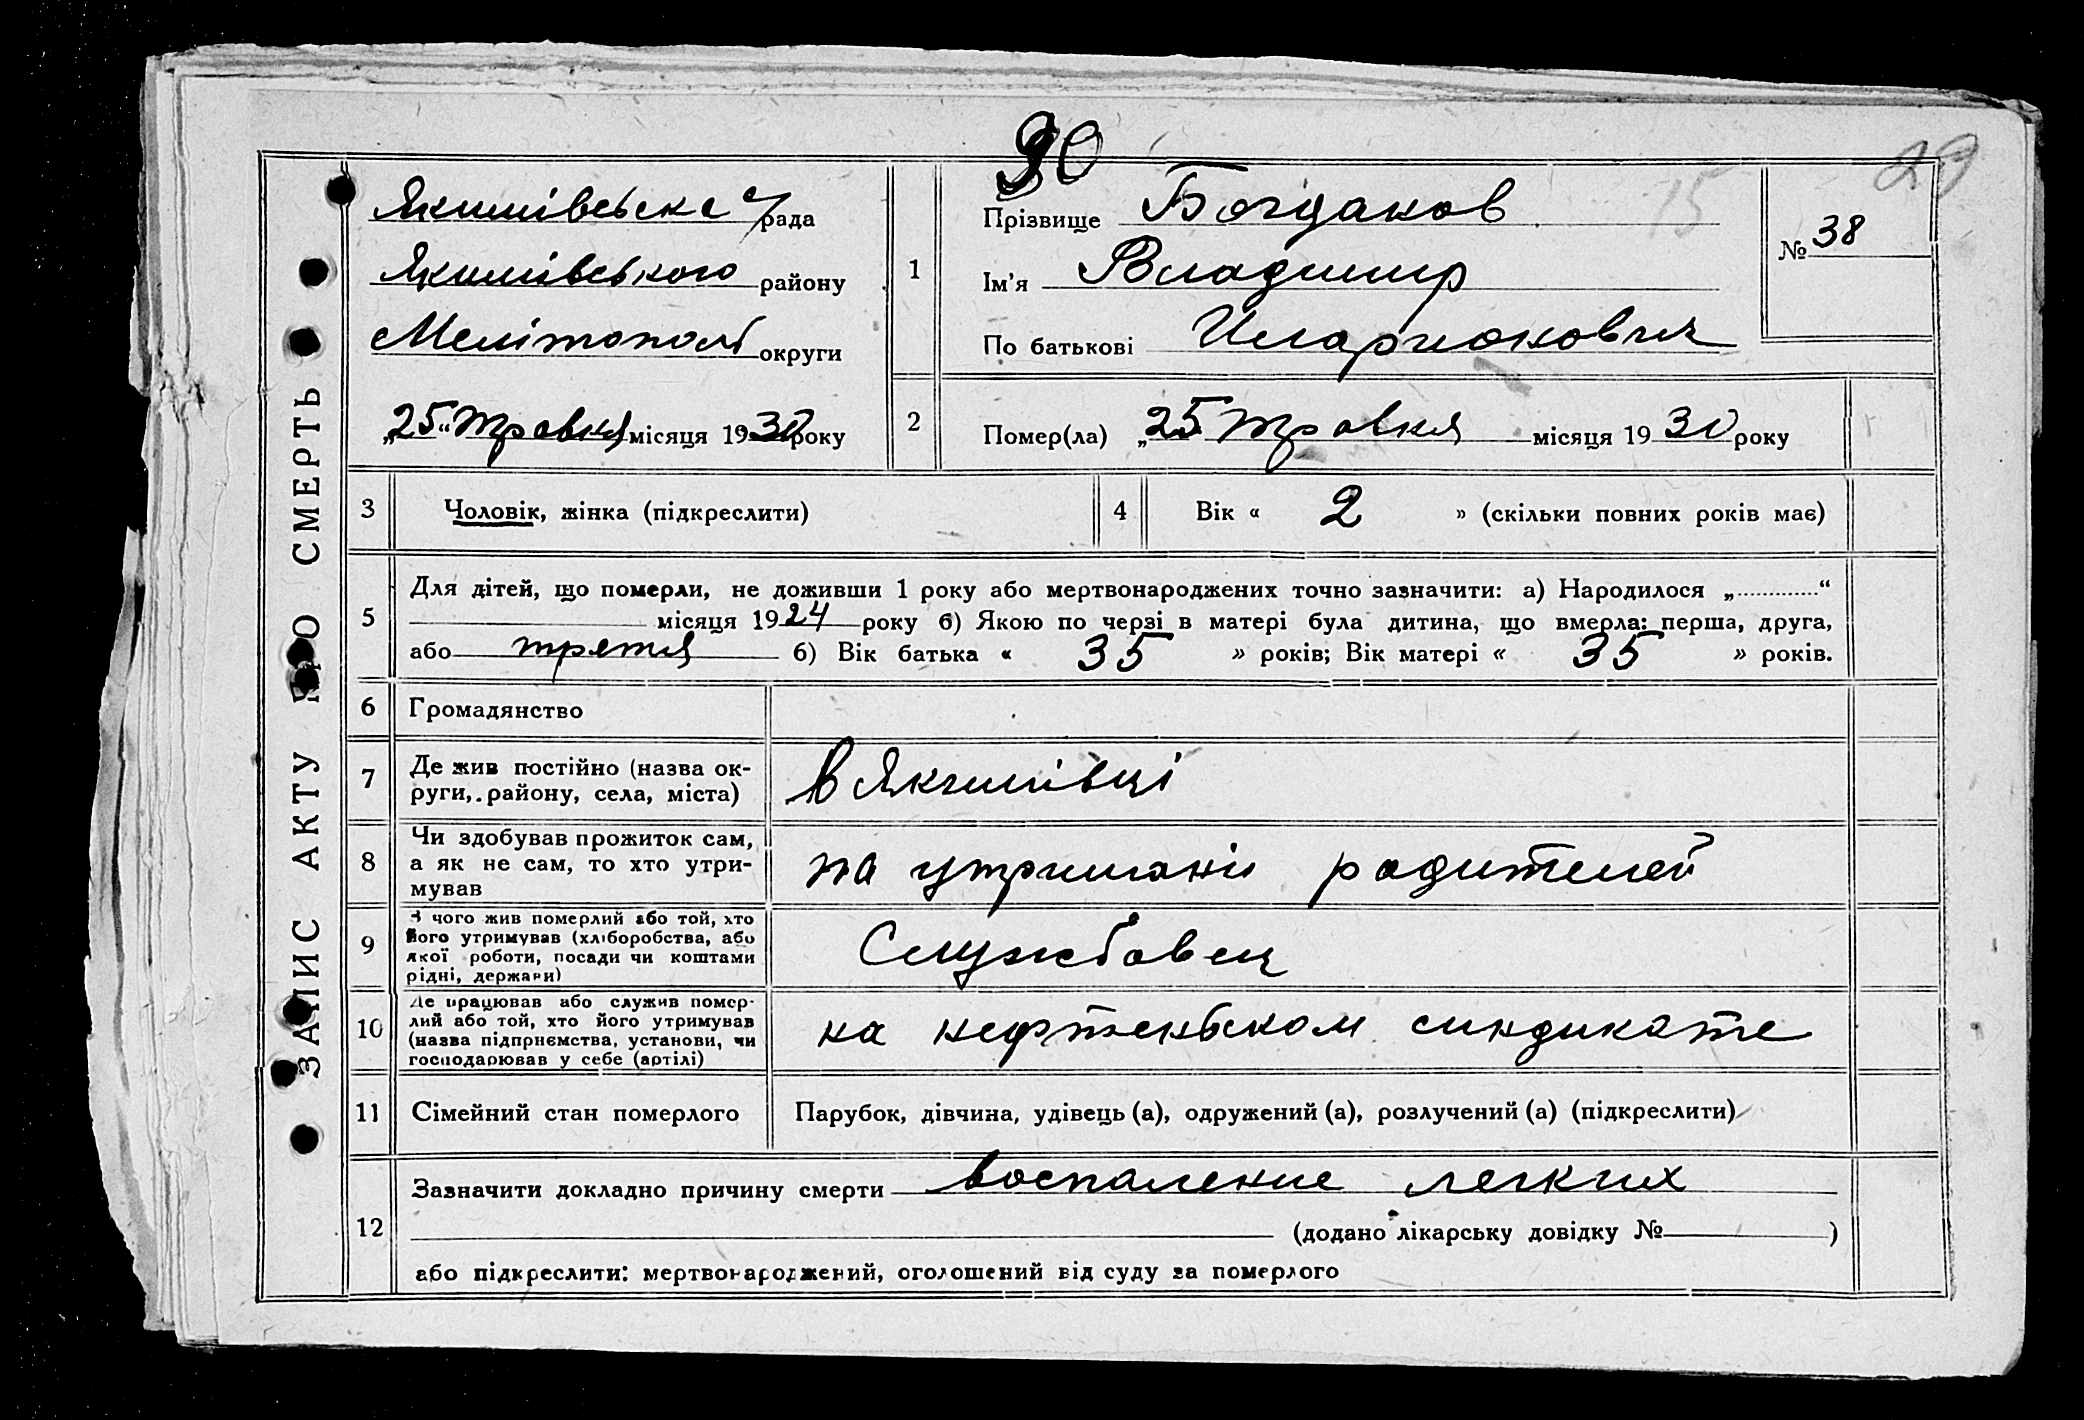 90
29
15
ЗАПИС АКТУ ПРО СМЕРТЬ
Якимівська с/рада
Якимівського району
Мелітополь округи
„25“ Травня місяця 1930 року
1
Прізвище Богданов
Ім'я Владимир
По батькові Иларионович
№ 38
2
Помер(ла) „25 Травня місяця 1930 року
3 Чоловік, жінка (підкреслити)
4 Вік « 2 » (скільки повних років має)
5
Для дітей, що померли, не доживши 1 року або мертвонароджених точно зазначити: а) Народилося „.............“
місяця 1924 року б) Якою по черзі в матері була дитина, що вмерла: перша, друга,
або третя б) Вік батька « 35 » років; Вік матері « 35 » років.
6 Громадянство
7
Де жив постійно (назва ок-
руги, району, села, міста)
в Якимівці
8
Чи здобував прожиток сам,
а як не сам, то хто утри-
мував
на утримані родителей
9
З чого жив померлий або той, хто
його утримував (хліборобства, або
якої роботи, посади чи коштами
рідні, держави)
Службовец
10
Де працював або служив помер-
лий або той, хто його утримував
(назва підприємства, установи, чи
господарював у себе (артілі)
на нефтеньском синдикате
11 Сімейний стан померлого
Парубок, дівчина, удівець (а), одружений (а), розлучений (а) (підкреслити)
12
Зазначити докладно причину смерти воспаление легких
(додано лікарську довідку № )
або підкреслити: мертвонароджений, оголошений від суду за померлого